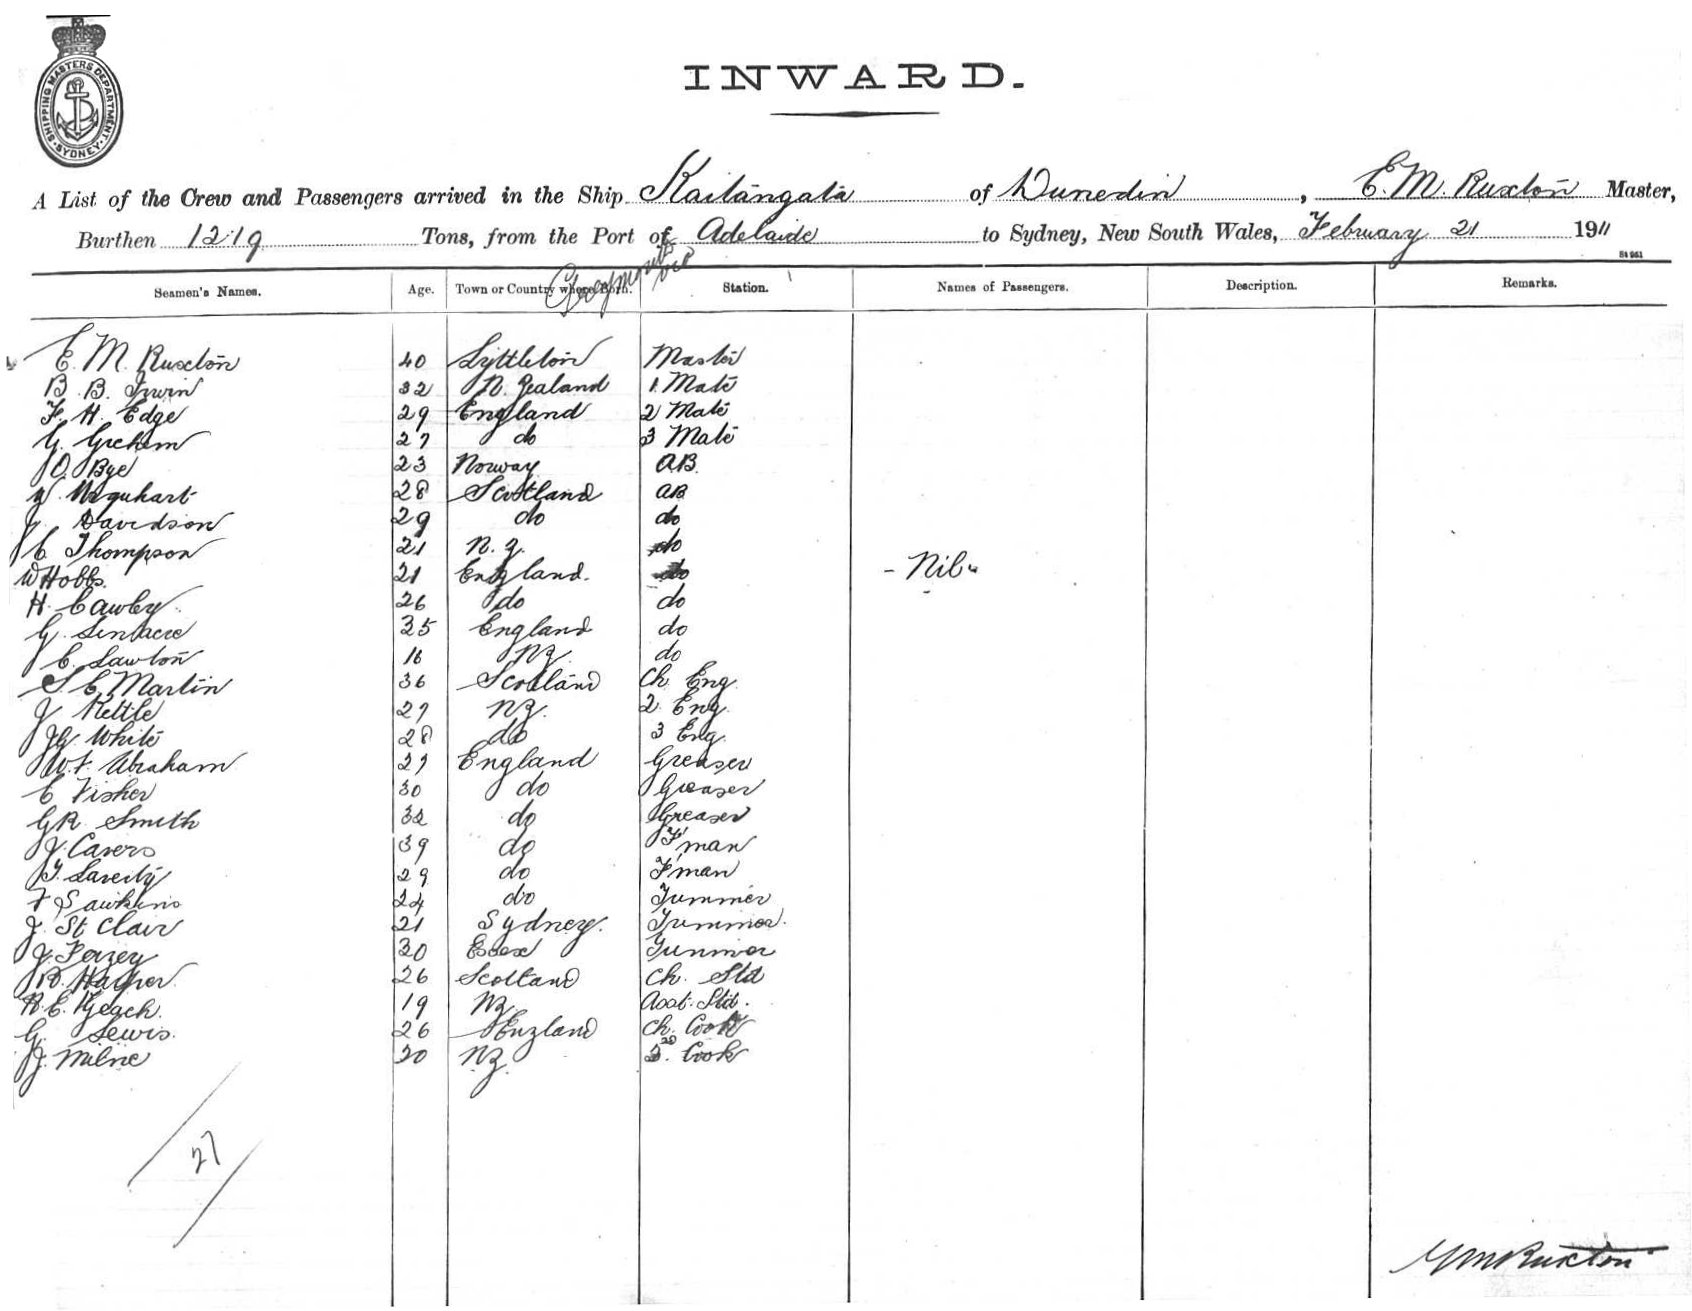 SHIPPING MASTERS DEPARTMENT SYDNEY
INWARD.
A List of the Crew and Passengers arrived in the Ship Kaitangata of Dunedin, E. M. Ruxton Master,
Burthen 1219 Tons, from the Port of Adelaide to Sydney, New South Wales, February 21 1911
via
St 961
Seamen's Names. Age. Town or Country where Born. Station. Names of Passengers. Description. Remarks.
E. M. Ruxton 40 Lyttleton Master
B. B. Irwin 32 N. Zealand 1. Mate
F. H. Edge 29 England 2 Mate
G. Grehem 27 do 3 Mate
O. Bye 23 Norway AB.
Urquhart 28 Scotland AB
J. Davidson 29 do do
C Thompson 21 N. Z. do
W Hobbs. 21 England. do - Nil -
H. Cawley 26 do do
G. Linacre 35 England do
C. Lawton 16 NZ do
S. E. Martin 36 Scotland Ch Eng.
J Kettle 27 NZ. 2 Eng.
JG White 28 do 3 Eng.
W. F. Abraham 27 England Greaser
C Fisher 30 do Greaser
GR Smith 32 do Greaser
J. Casers 39 do F'man
29 do F'man
F Sawkins 24 do Trimmer
J. St Clair 21 Sydney. Trimmer.
J. 30 Essex Trimmer
26 Scotland Ch. Std
R. E. Geach. 19 NZ Asst. Std.
G. Lewis. 26 England Ch. Cook
J. Milne 20 NZ. 2. Cook
27
Ruxton